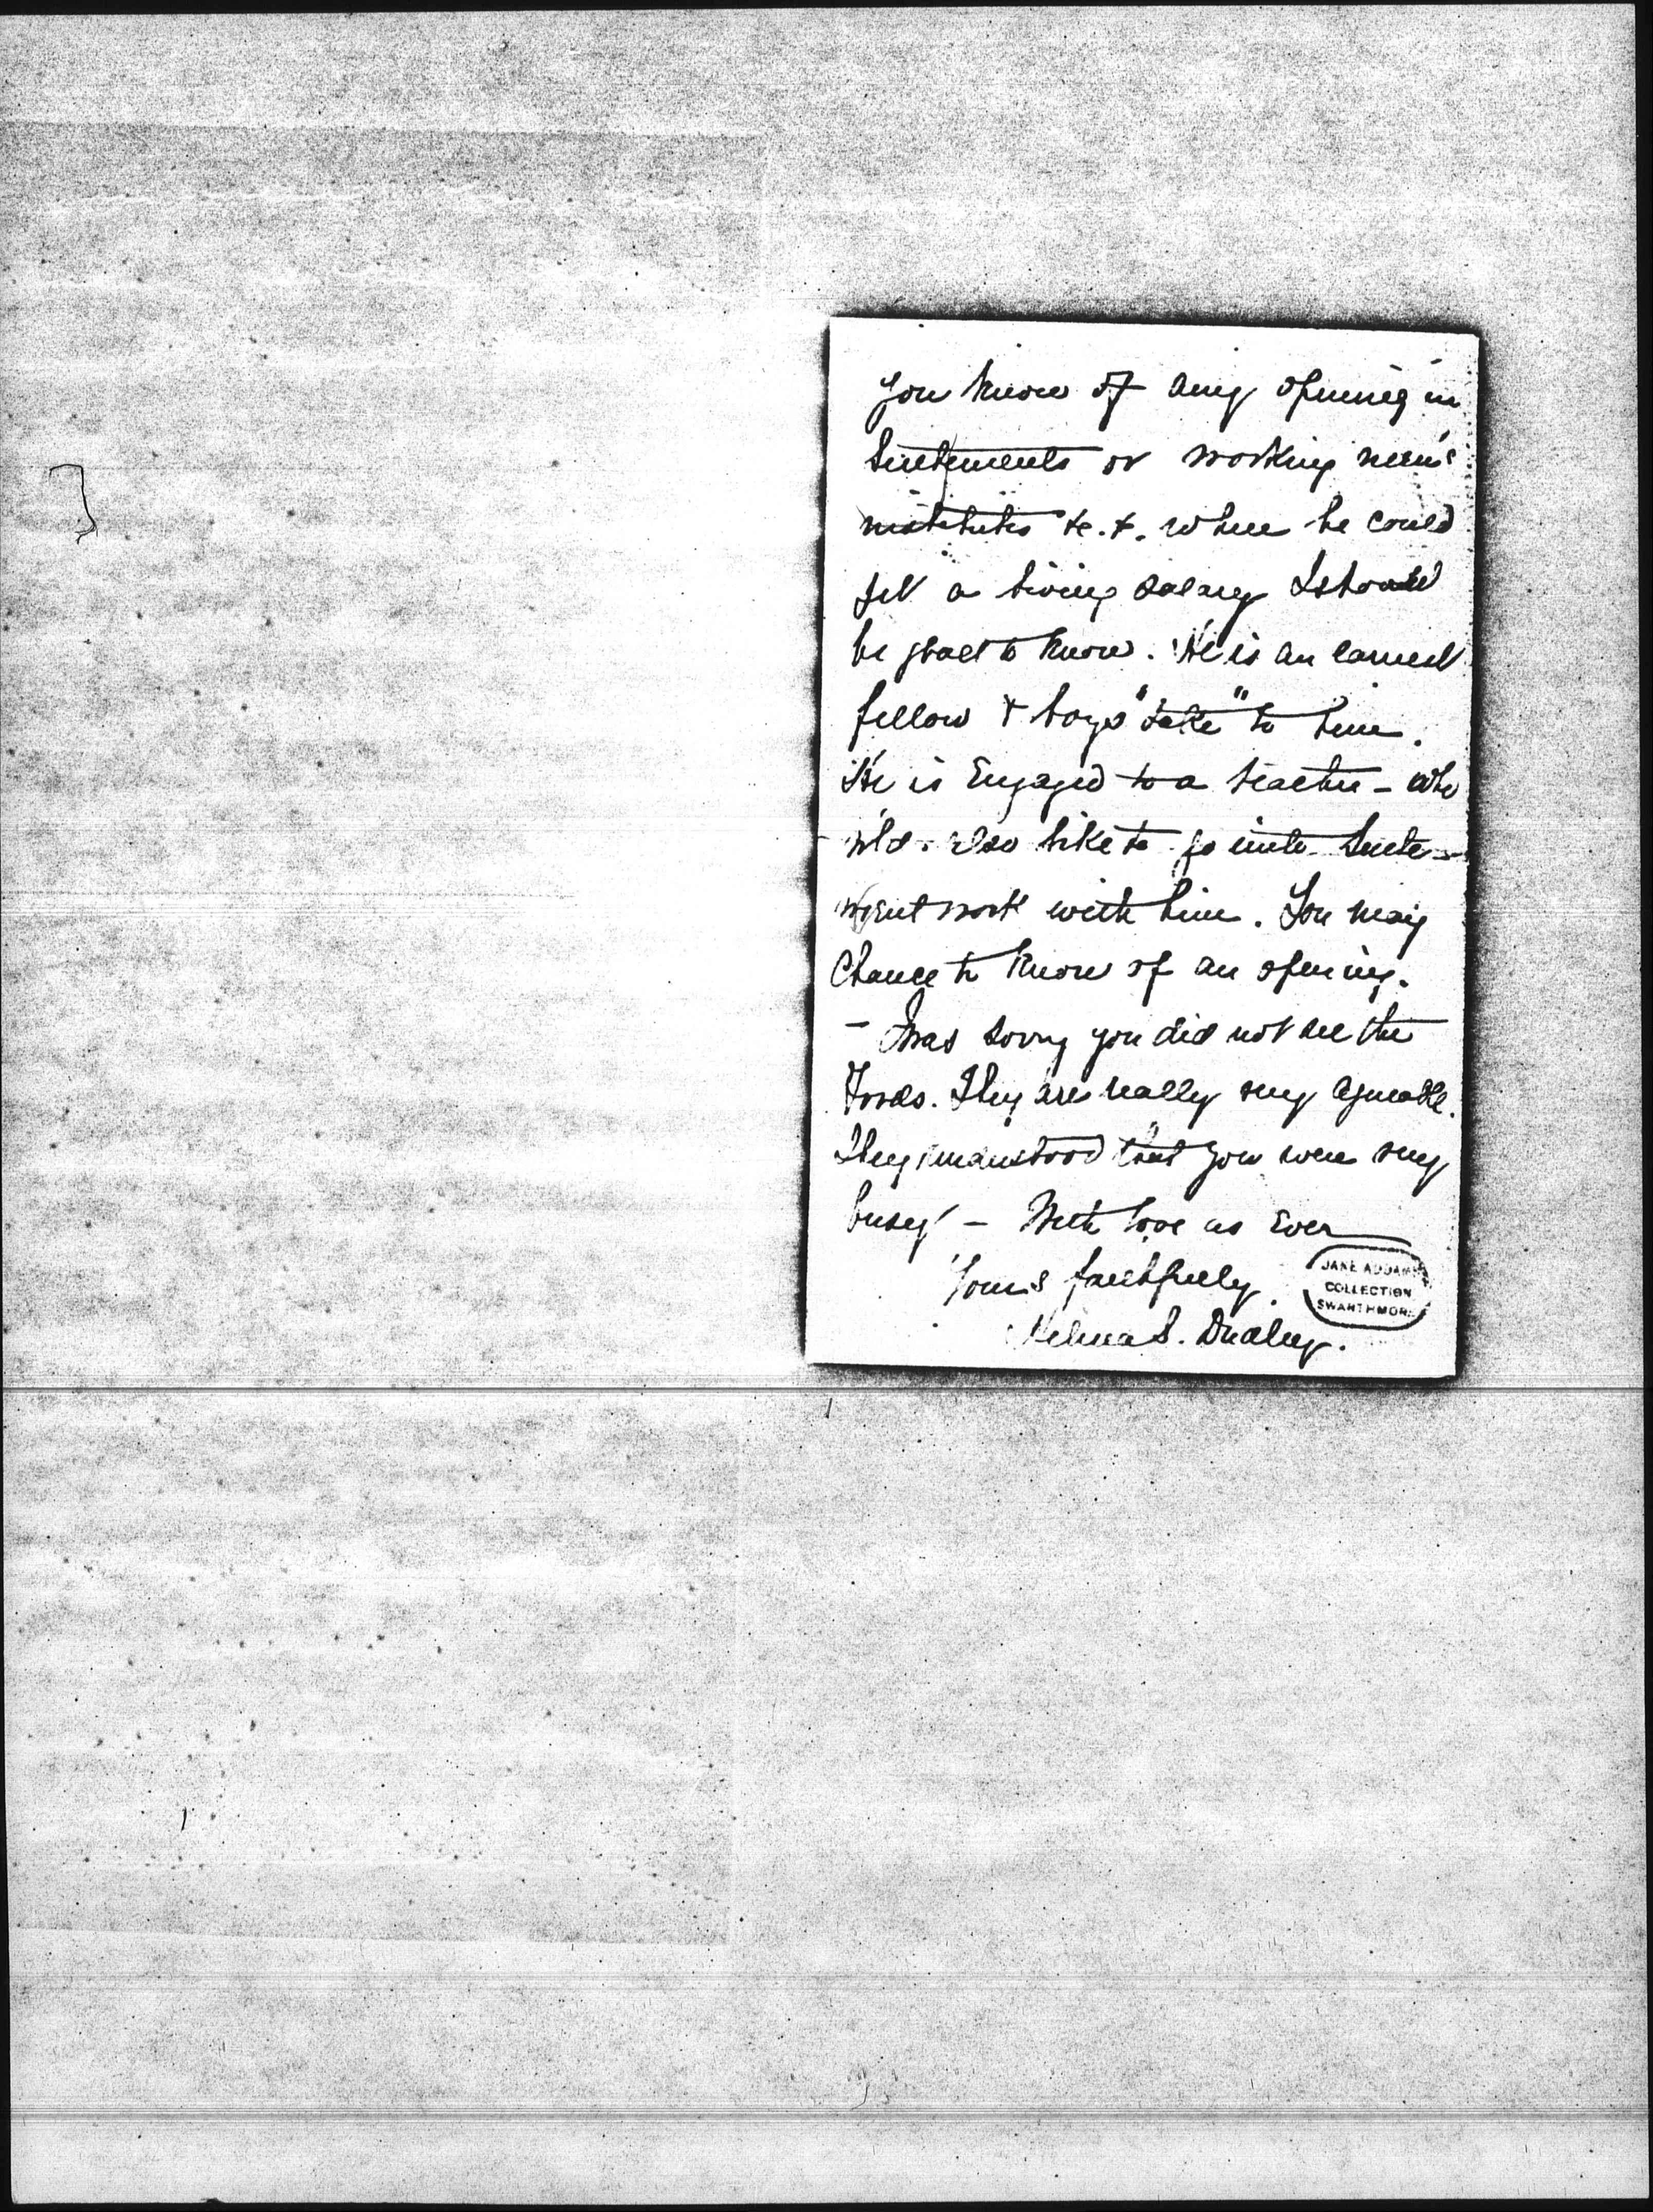 you know of any opening in
Settlements or working men's
institutes &c. &. where he could
get a living salary I should
be glad to know. He is an earnest
fellow & boys "take" to him.
He is Engaged to a teacher - who
wld. also like to go into Settle-
ment work with him. You may
Chance to know of an opening.
- Was sorry you did not see the
Fords. They are really very agreeable.
They understood that you were very
busy - With love as Ever
Yours faithfully.
Helena S. Dudley.
JANE ADDAMS
COLLECTION
SWARTHMORE